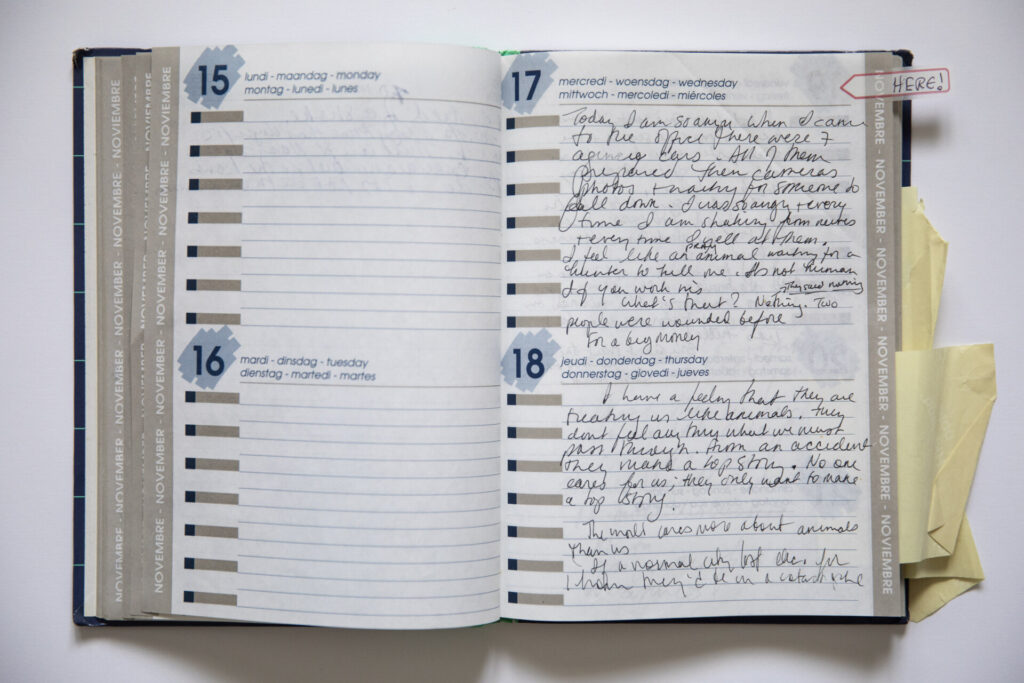 NOVEMBER - NOVEMBRE - NOVIEMBRE
NOVIEMBRE
NOVIEMBRE
15
lundi - maandag - monday
montag - lunedi - lunes
16
mardi - dinsdag - tuesday
dienstag - martedi - martes
17
mercredi - woensdag - wednesday
mittwoch - mercoledi - miércoles
HERE!
Today I am so angry when I came
to the office there were 7
agencies cars. All of them
prepared their cameras
photos + waiting for someone to
fall down. I was so angry + every
time I am shaking from nerves
+ every time I yell at them.
I feel like an animal waiting for a
hunter to kill me. It's not human
if you work
They said nothing
What's that? Nothing. Two
people were wounded before
for a big money
18
jeudi - donderdag - thursday
donnerstag - giovedi - jueves
I have a feeling that they are
treating us like animals. they
dont feel any thing what we must
pass through. From an accident
they make a top story. No one
cares for us; they only want to make
a top story.
The world cares more about animals
than us
If a normal city lost elec. for
1 hour they'd be in a catastrophe
NOVEMBER - NOVEMBRE - NOVIEMBRE